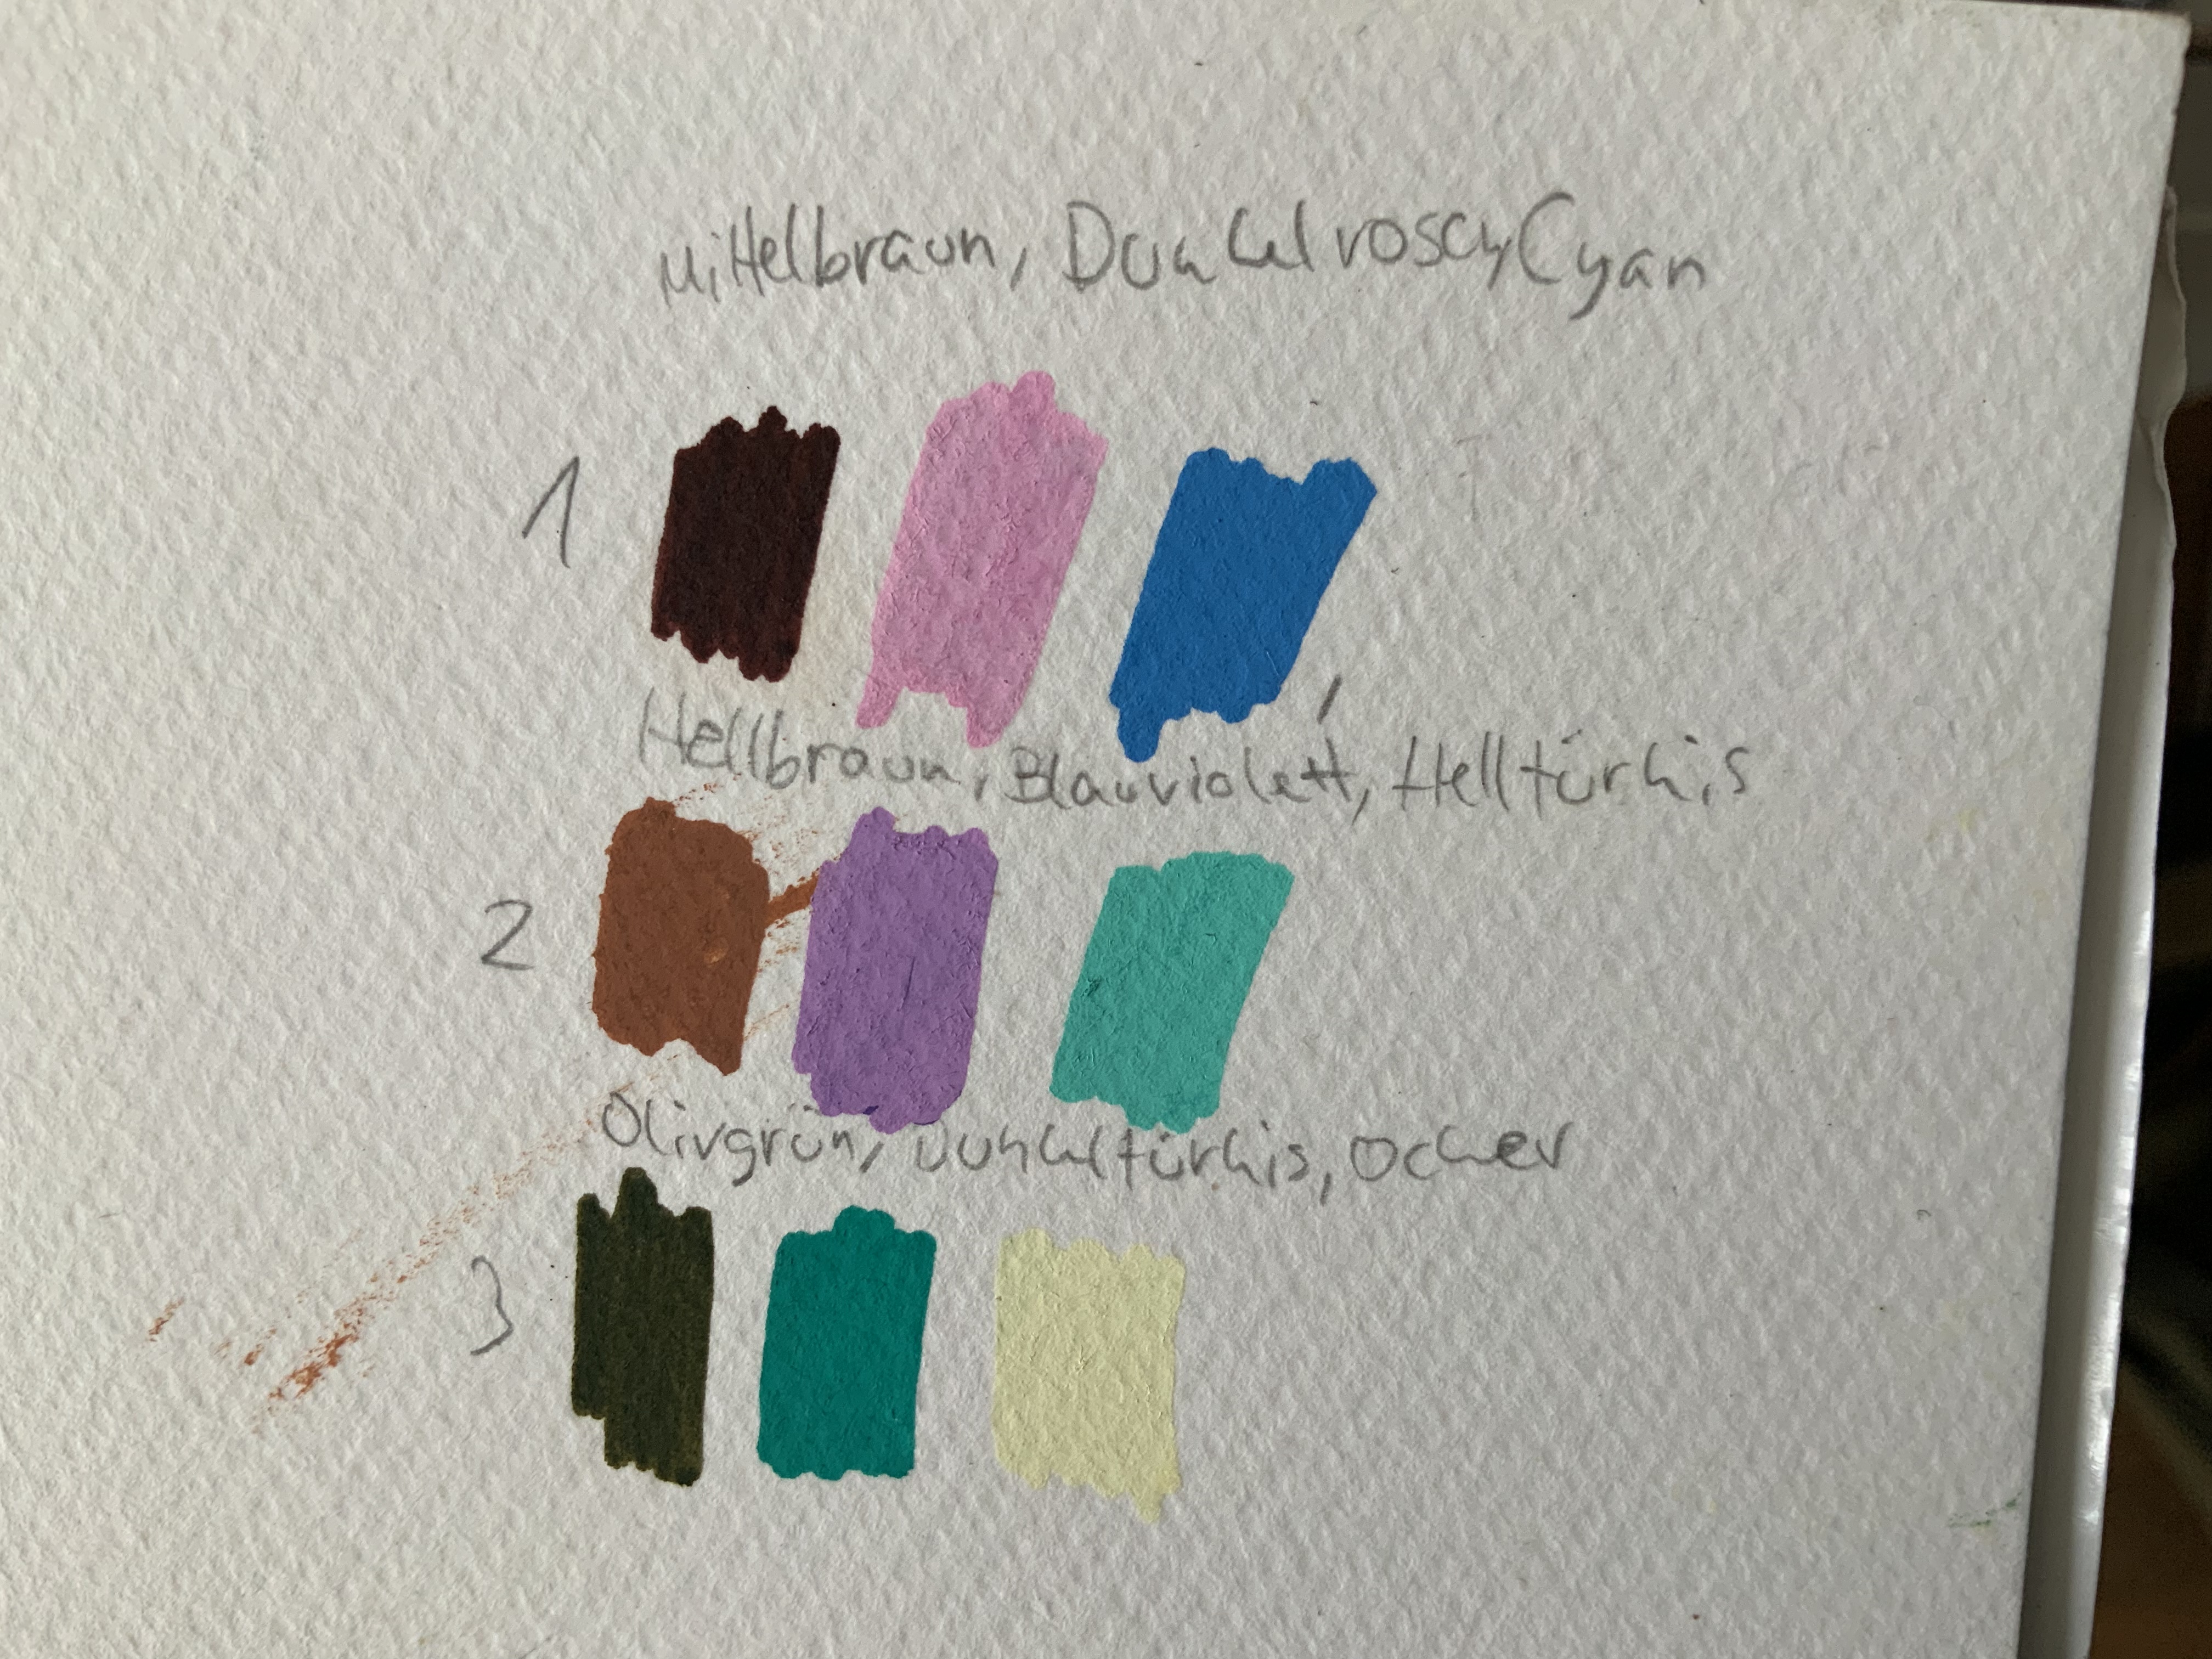 Mittelbraun, Dunkelrosa, Cyan
1
Hellbraun, Blauviolett, Helltürkis
2
Olivgrün, Dunkeltürkis, Ocker
3